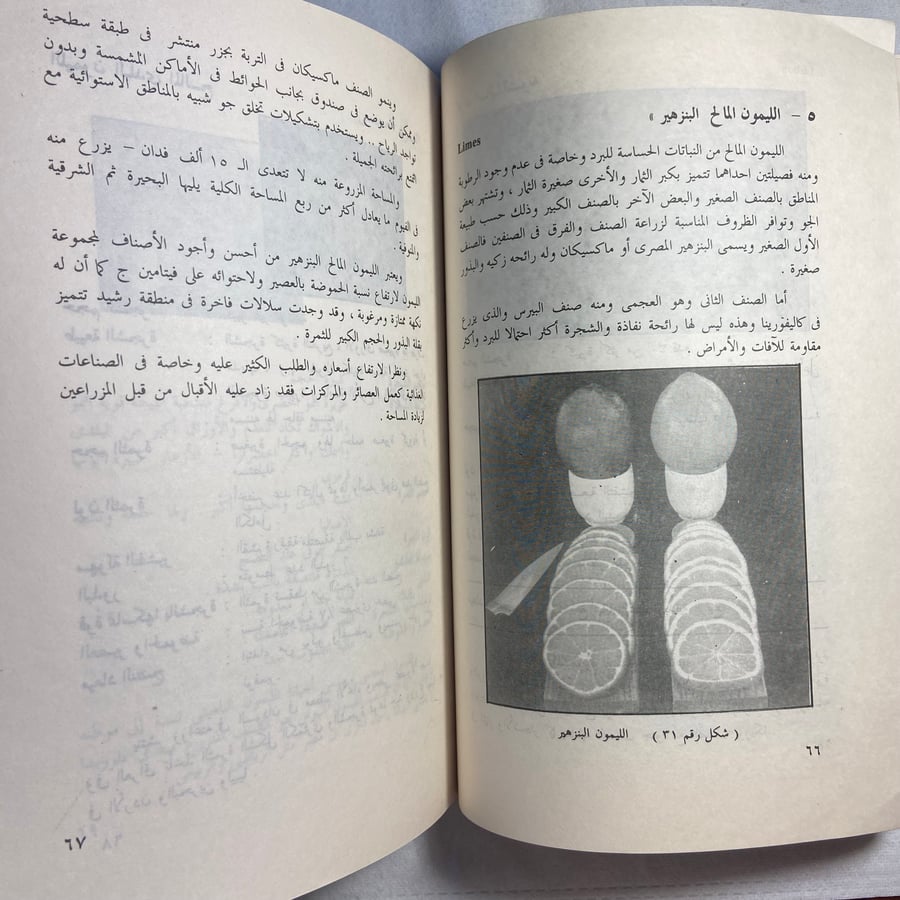 ٥ – الليمون المالح البنزهير »
Limes
الليمون المالح من النباتات الحساسة للبرد وخاصة فى عدم وجود الرطوبة
ومنه فصيلتين احداهما تتميز بكبر الثمار والأخرى صغيرة الثمار ، وتشتهر بعض
المناطق بالصنف الصغير والبعض الآخر بالصنف الكبير وذلك حسب طبيعة
الجو وتوافر الظروف المناسبة لزراعة الصنف والفرق فى الصنفين فالصنف
الأول الصغير ويسمى البنزهير المصرى أو ماكسيكان وله رائحه زكيه والبذور
صغيرة .
أما الصنف الثانى وهو العجمى ومنه صنف البيرس والذى يزرع
فى كاليفورينا وهذه ليس لها رائحة نفاذة والشجرة أكثر احتمالا للبرد وأكثر
مقاومة للآفات والأمراض .
( شكل رقم ٣١ ) الليمون البنزهير
٦٦
وينمو الصنف ماكسيكان فى التربة بجزر منتشر فى طبقة سطحية
ويمكن أن يوضع فى صندوق بجانب الحوائط فى الأماكن المشمسة وبدون
تواجد الرياح .. ويستخدم بتشكيلات تخلق جو شبيه بالمناطق الاستوائية مع
التمتع برائحته الجميلة .
والمساحة المزروعة منه لا تتعدى الـ ١٥ ألف فدان – يزرع منه
فى الفيوم ما يعادل أكثر من ربع المساحة الكلية يليها البحيرة ثم الشرقية
والمنوفية .
ويعتبر الليمون المالح البنزهير من أحسن وأجود الأصناف لمجموعة
الليمون لارتفاع نسبة الحموضة بالعصير ولاحتوائه على فيتامين ج كما أن له
نكهة ممتازة ومرغوبة ، وقد وجدت سلالات فاخرة فى منطقة رشيد تتميز
بقلة البذور والحجم الكبير للثمرة .
ونظرا لارتفاع أسعاره والطلب الكثير عليه وخاصة فى الصناعات
الغذائية كعمل العصائر والمركزات فقد زاد عليه الأقبال من قبل المزراعين
لزيادة المساحة .
٦٧